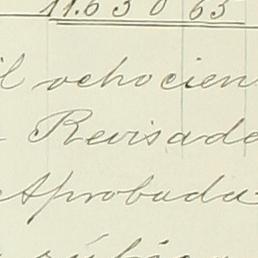 11.630 63
il ochocien
Revisado
Aprobada